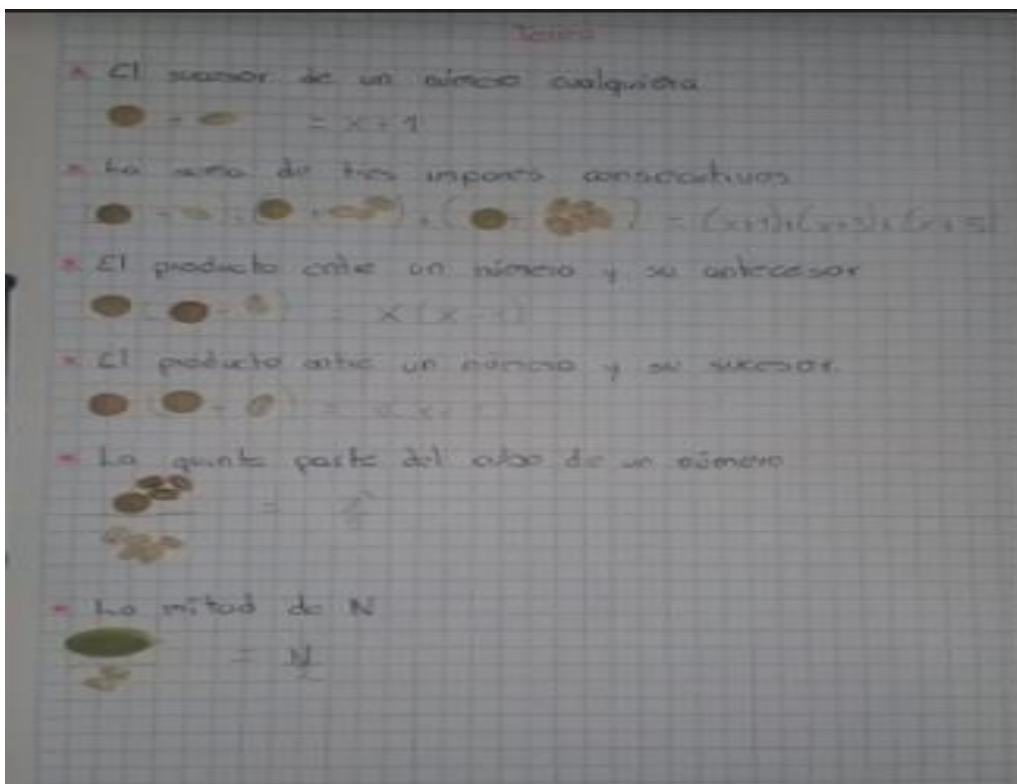 Tarea
* El sucesor de un número cualquiera
= x + 1
* La suma de tres impares consecutivos
( + ) + ( + ) + ( + ) = (x+1)+(x+3)+(x+5)
* El producto entre un número y su antecesor
( - ) = x (x - 1)
* El producto entre un número y su sucesor.
* La quinta parte del cubo de un número
=
* La mitad de N
= N/2